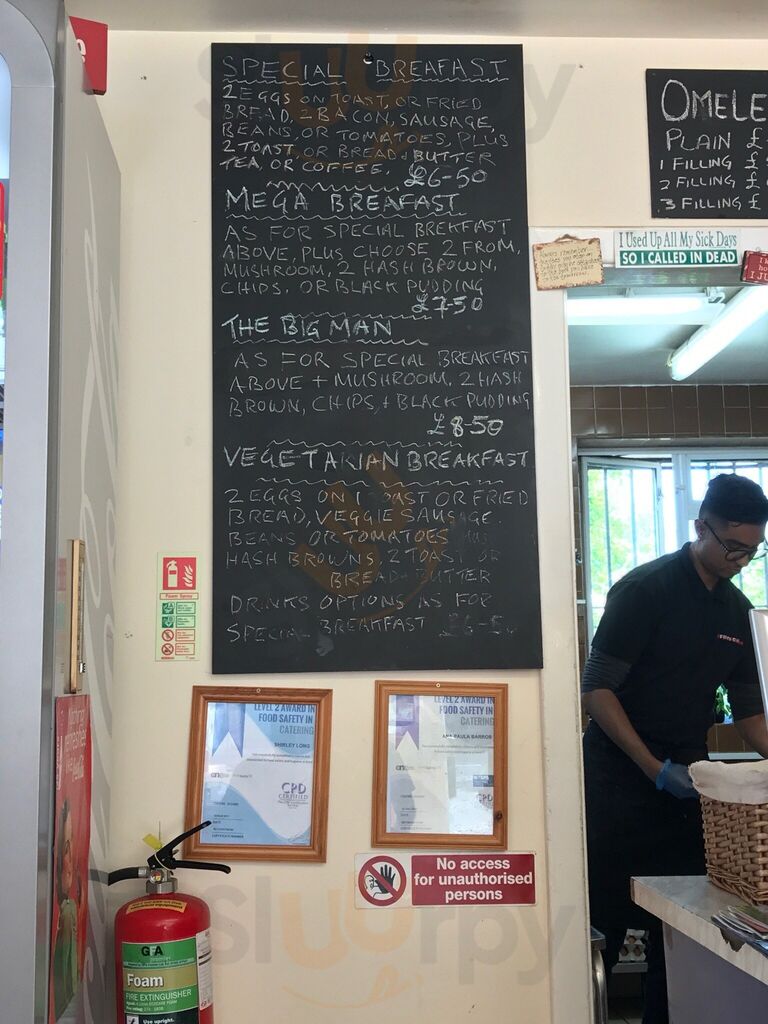 SPECIAL BREAFAST
2 EGGS ON TOAST, OR FRIED
BREAD, 2 BACON, SAUSAGE,
BEANS, OR TOMATOES, PLUS
2 TOAST, OR BREAD + BUTTER
TEA, OR COFFEE. £6-50
MEGA BREAFAST
AS FOR SPECIAL BREKFAST
ABOVE, PLUS CHOOSE 2 FROM,
MUSHROOM, 2 HASH BROWN,
CHIPS, OR BLACK PUDDING
£7-50
THE BIG MAN
AS FOR SPECIAL BREAKFAST
ABOVE + MUSHROOM, 2 HASH
BROWN, CHIPS, + BLACK PUDDING
£8-50
VEGETARIAN BREAKFAST
2 EGGS ON 1 TOAST OR FRIED
BREAD, VEGGIE SAUSAGE.
BEANS OR TOMATOES
HASH BROWNS, 2 TOAST OR
BREAD + BUTTER
DRINKS OPTIONS AS FOR
SPECIAL BREAKFAST
OMELE
PLAIN £
1 FILLING £
2 FILLING £
3 FILLING £
I Used Up All My Sick Days
SO I CALLED IN DEAD
Foam Spray
LEVEL 2 AWARD IN
FOOD SAFETY IN
CATERING
SHIRLEY LONG
CPD
CERTIFIED
LEVEL 2 AWARD IN
FOOD SAFETY IN
CATERING
ANA PAULA BARROS
No access
for unauthorised
persons
Foam
FIRE EXTINGUISHER
Sluurpy
Sluurpy